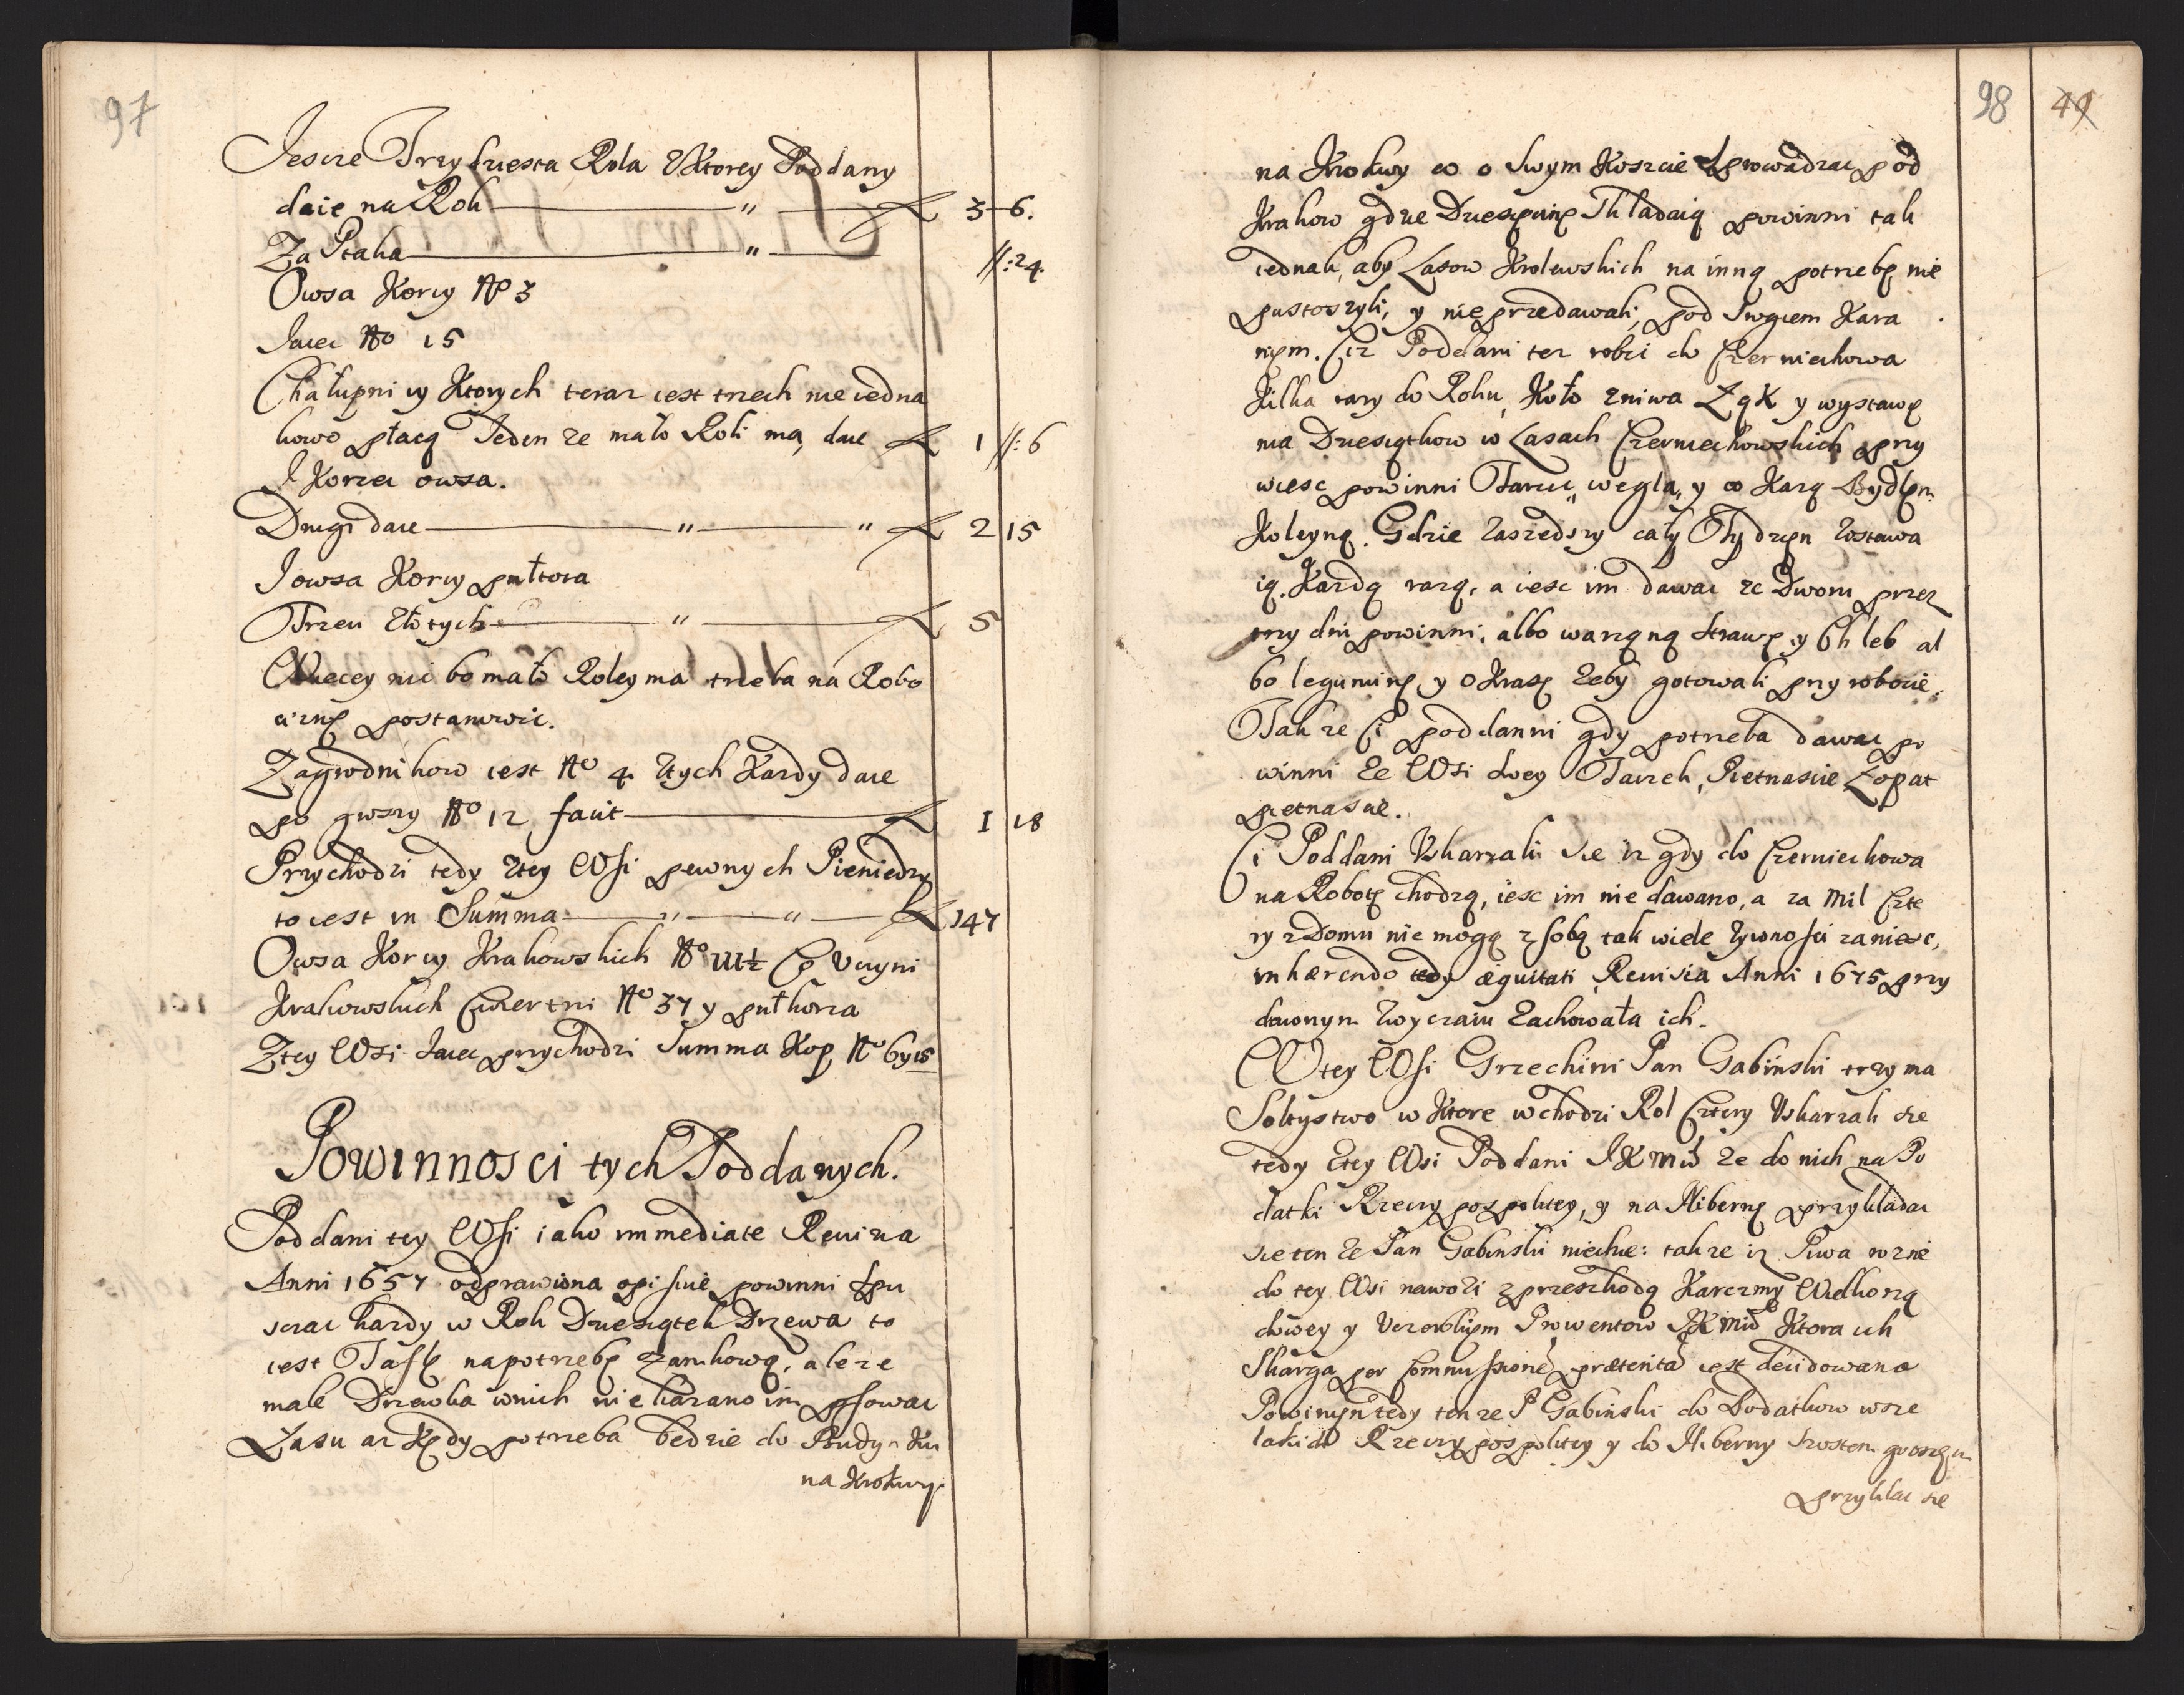 97
Jescze Trzydziesta Rola Vktorey Poddany
daie na Rok — " — fl 3 6.
Za Ptaka — " — //:24.
Owsa Korcy No 3
Jaiec No 15
Chałupnicy Ktorych teraz iest trzech nie iedna
kowo płacą Jeden ze mało Roli ma, daie fl 1 //:6
I Korzec owsa.
Drugi daie — " — " fl 2 15
I owsa Korcy pułtora
Trzeci Złotych — " — fl 5
Więcey nic bo mało Roley ma trzeba na Robo
ciznę postanowić.
Zagrodnikow iest No 4. Ztych Kazdy daie
po groszy No 12 facit — fl 1 18
Przychodzi tedy Ztey Wsi pewnych Pieniedzy
to iest in Summa — " — " — fl 147
Owsa Korcy Krakowskich No Co Vczyni
Krakowskich Cwiertni No 37 y pułtora
Ztey Wsi Jaiec przychodzi Summa Kop No 6 y 15
Powinnosci tych Poddanych.
Poddani tey Wsi iako immediate Rewizia
Anni 1657 odprawiona opisuie powinni Spu
sczac kazdy w Rok Dziesiątek Drzewa to
iest Taflę na potrzebę Zamkową, ale ze
małe Drzewka w nich nie kazano im psować
Lasu az Kędy potrzeba będzie do Budynku
na Krokwy
98 49
na Krokwy co o Swym Koszcie Sprowadzac pod
Krakow gdzie Dziesęcinę Składaią powinni tak
iednak, aby Lasow Krolewskich na inną potrzebę nie
pustoszyli, y nie przedawali, pod Srogiem Kara
niem. Ciz Poddani tez robić do Czerniechowa
Kilka razy do Roku, Koło zniwa Łąk y wystawę
nia Dziesiątkow w Lasach Czerniechowskich przy
wiesc powinni Tarcic, wegla, y co Karą Bydłem
Koleyną. Gdzie Zaszedszy cały Tydzen Zostawa
ią. Kazdą razą, a iesc im dawac ze Dworu przez
trzy dni powinni, albo warząną strawę y Chleb al
bo leguminę y okrasę zeby gotowali przy robocie.
Takze Ci poddanni gdy potrzeba dawac po
winni Ze Wsi swey Taczek, Pietnascie Łopat
pietnascie.
Ci Poddani Vskarzali sie iz gdy do Czerniechowa
na Robotę chodzą, iesc im nie dawano, a za Mil Czte
ry z Domu nie mogą z sobą tak wiele Zywnosci zaniesc,
inhærendo tedy æquitati Rewisia Anni 1675 przy
dawnym Zwyczaiu Zachowała ich.
W tey Wsi Grzechini Pan Gabinski trzyma
Soltystwo w Ktore wchodzi Rol Cztery Vskarzali sie
tedy Ztey Wsi Poddani JKMci Ze do nich na Po
datki Rzeczypospolitey, y na Hibernę przykładac
sie ten Ze Pan Gabinski niechce: takze iz Piwa rozne
do tey Wsi nawozi z przeszkodą Karczmy Wielkorzą
dowey y Vszczerbkiem Prowentow JKMci Ktora ich
Skarga per Commissionem præteritam iest decidowana
Powinien tedy tenze P Gabinski do Podatkow wsze
lakich Rzeczypospolitey y do Hiberny szostem groszem
przykłac sie